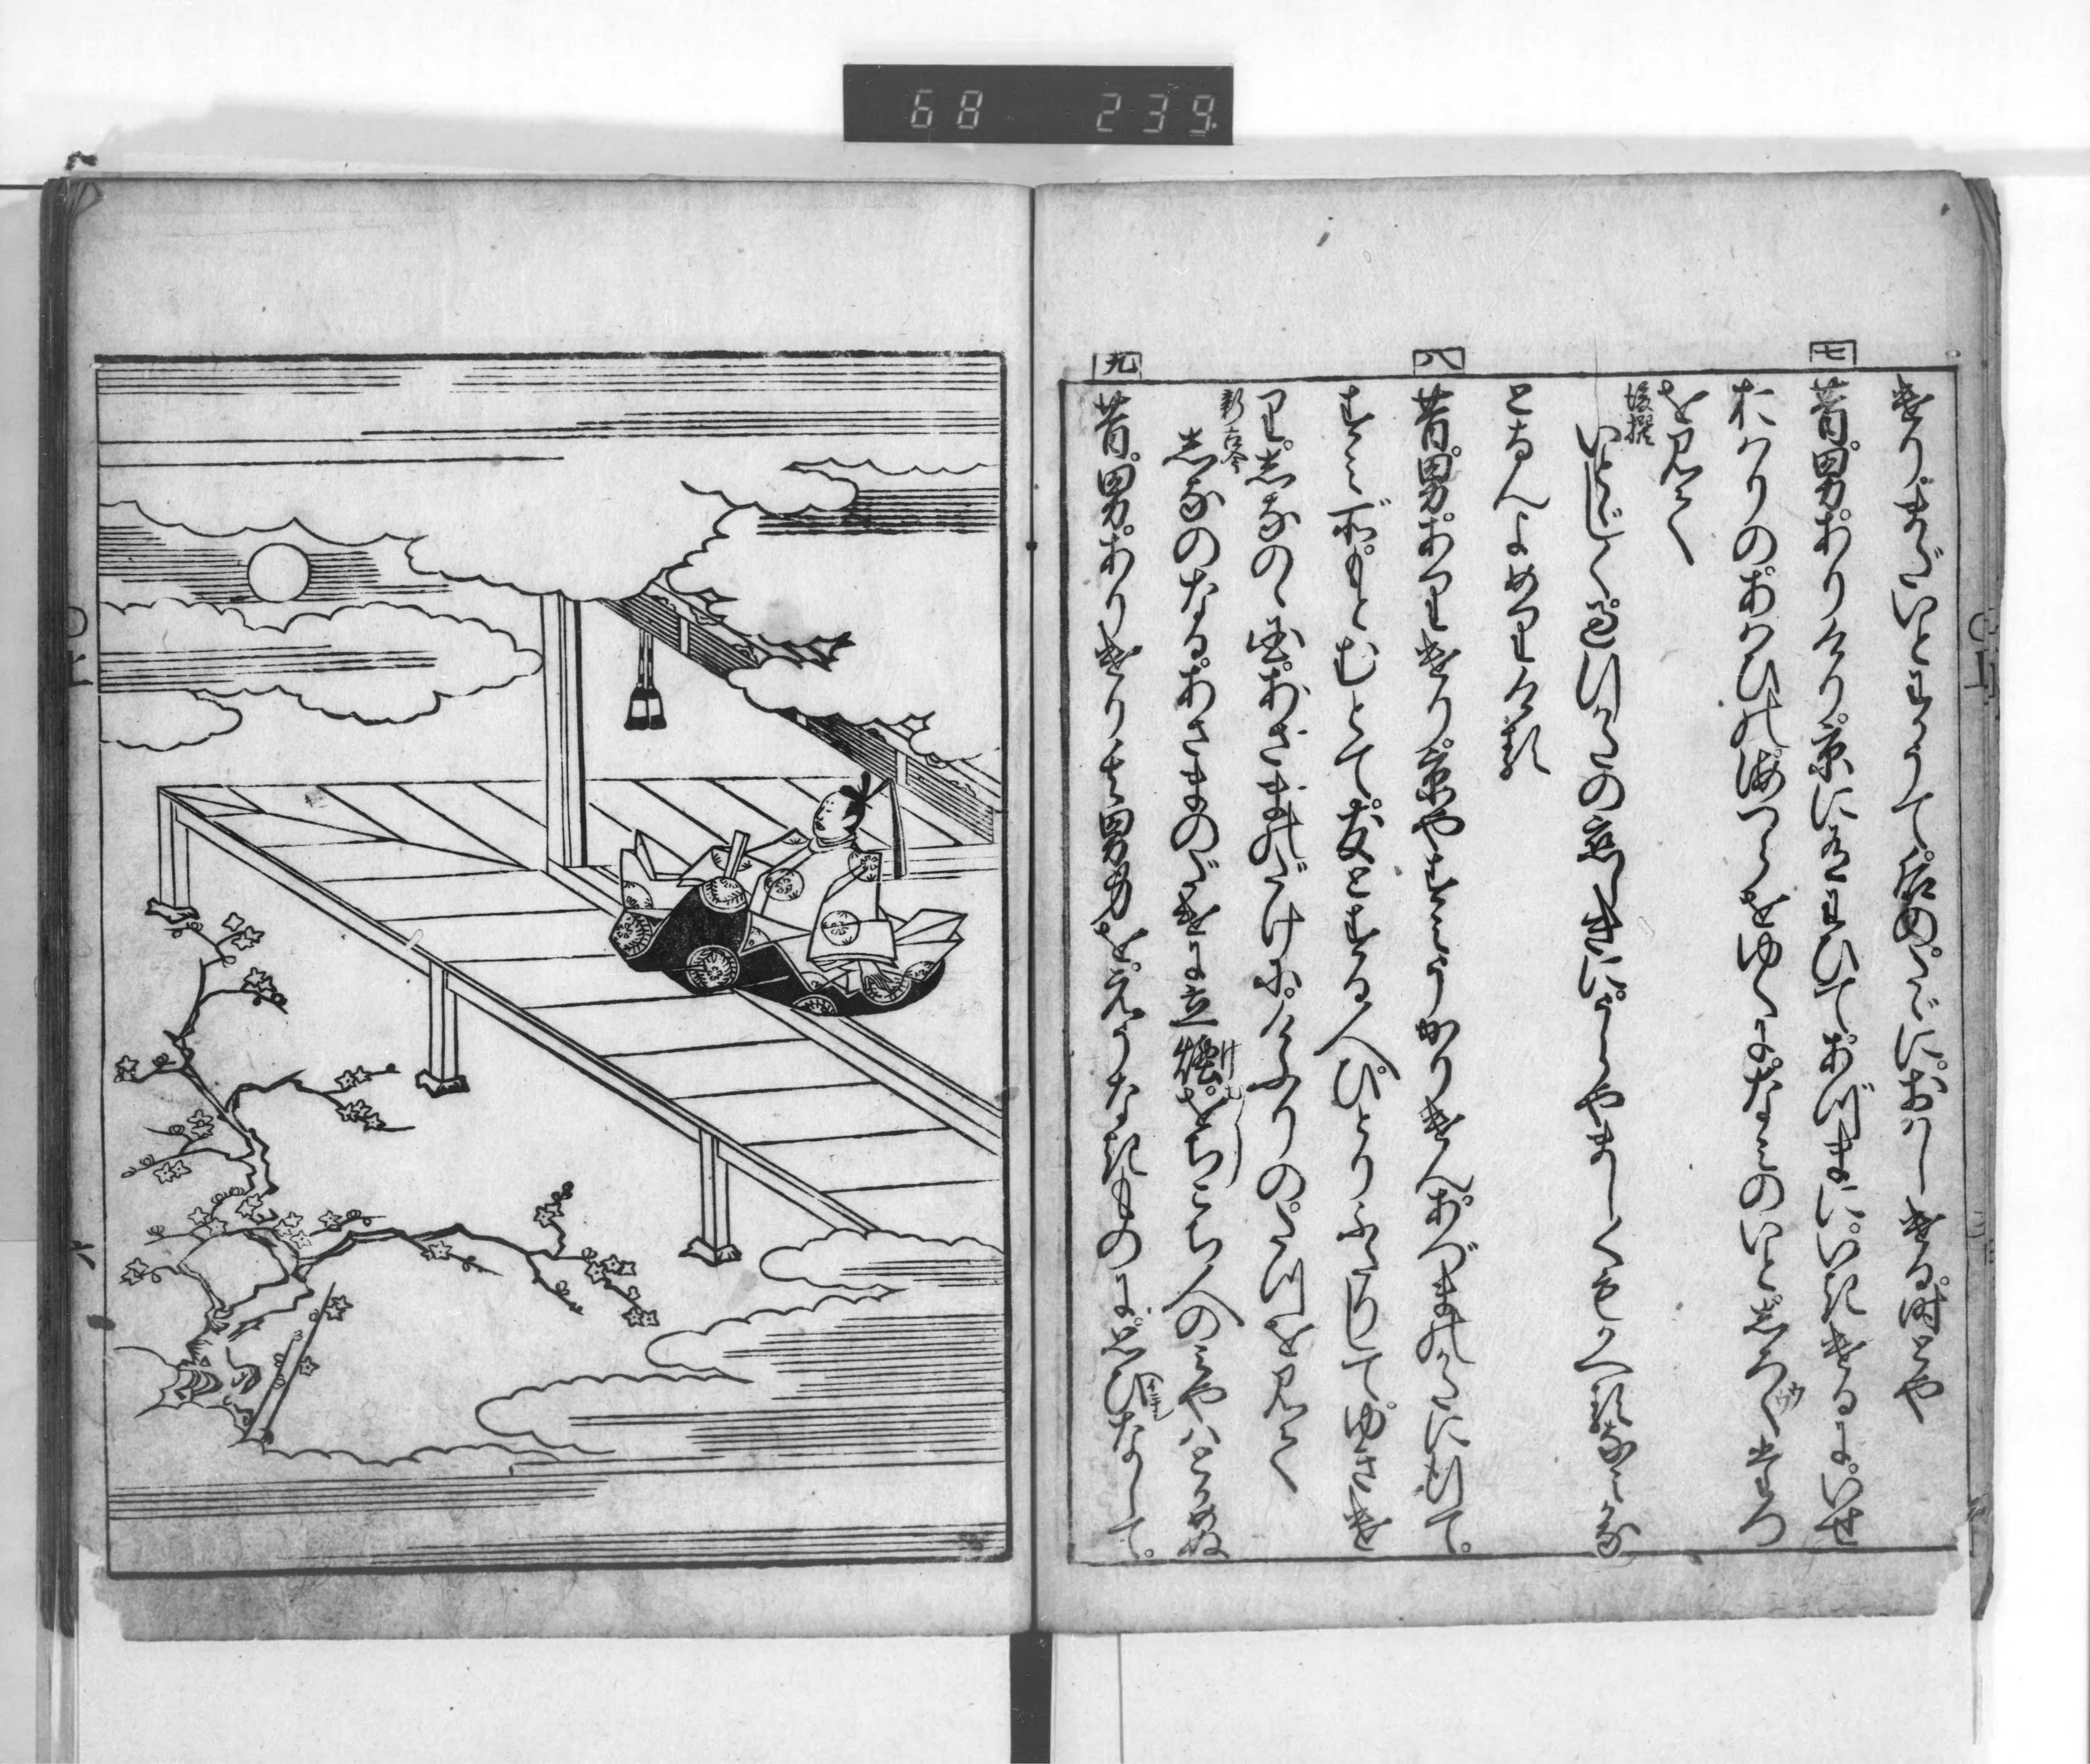 68 239
けり。まだいとわかうて。后の。たゞに。おはしける。時とや
七
昔。男。ありけり。京に有わひて。あづまに。いきけるに。いせ
おはりの。あはひの。海つらをゆくに。なみのいと。しろくたつ
を見て
後撰
いとゞしく。過行かたの恋しきに。うら山しくもかへるなみかな
となんよめりける
八
昔。男。ありけり。京やすみうかりけん。あづまのかたに行て。
すみ所。もとむとて。友とする人。ひとりふたりして。ゆきけ
り。しなのゝ国。あさまのだけに。けふりの。たつを見て
新古今
しなのなる。あさまのだけに立煙。をちこち人のみやはとがめぬ
けむり
九
昔。男。ありけり其男。身を。えうなきものに。思ひなして。